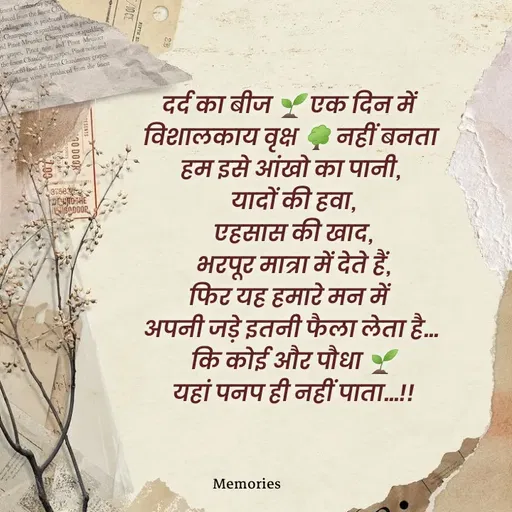 दर्द का बीज 🌱 एक दिन में
विशालकाय वृक्ष 🌳 नहीं बनता
हम इसे आंखो का पानी,
यादों की हवा,
एहसास की खाद,
भरपूर मात्रा में देते हैं,
फिर यह हमारे मन में
अपनी जड़े इतनी फैला लेता है...
कि कोई और पौधा 🌱
यहां पनप ही नहीं पाता...!!
Memories